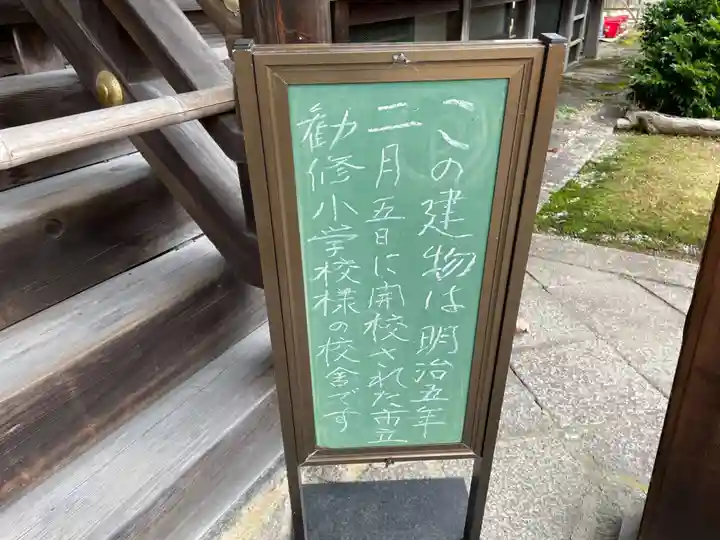 この建物は明治五年
二月五日に開校された市立
勧修小学校様の校舎です